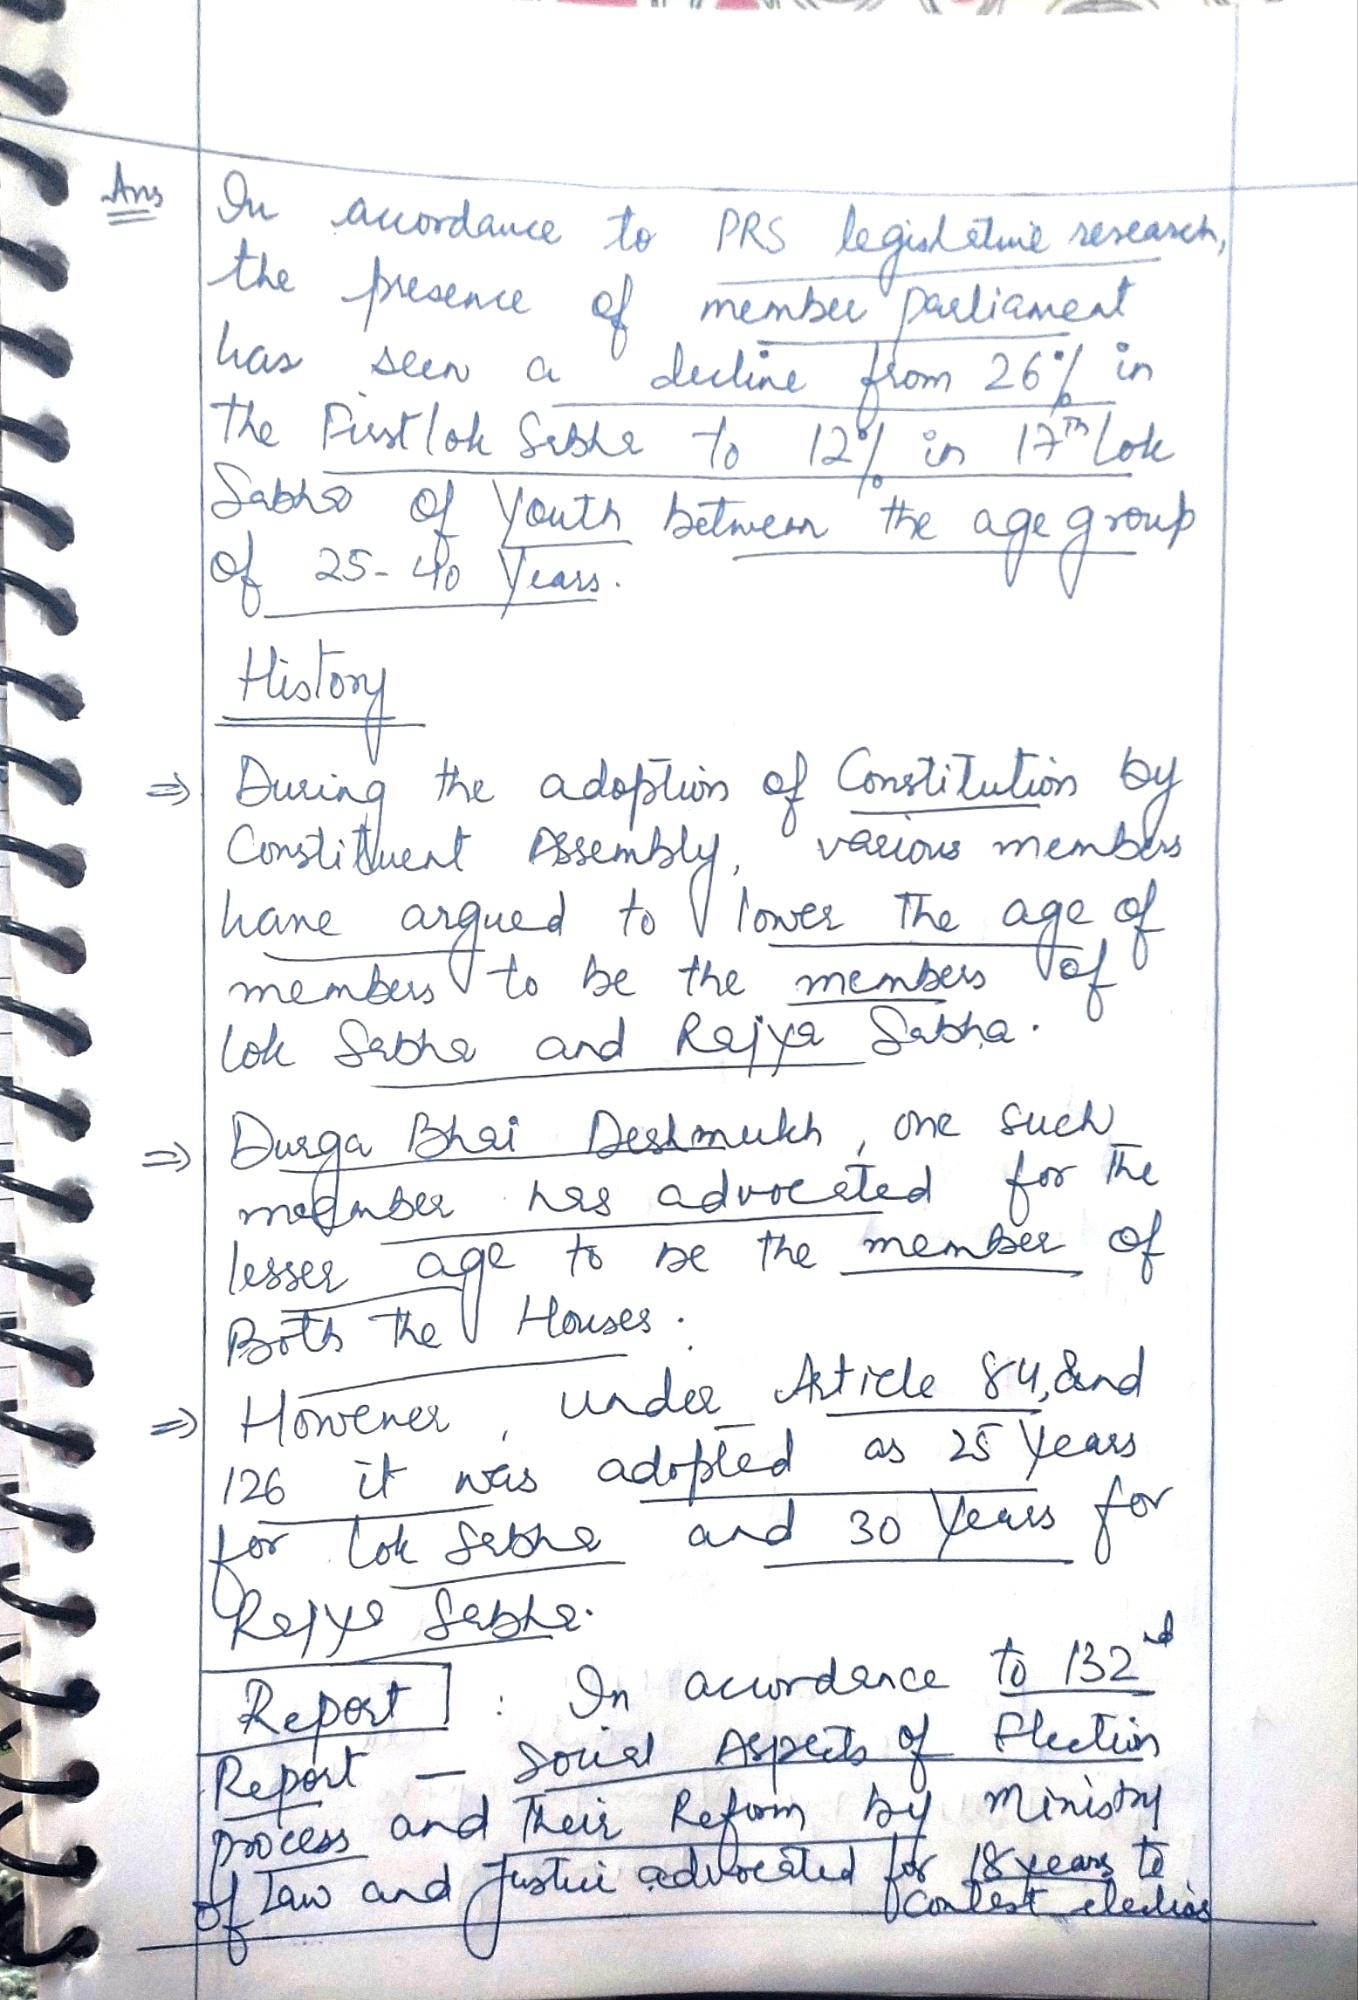 Ans In accordance to PRS legislative research,
the presence of member parliament
has seen a decline from 26% in
the First lok Sabha to 12% in 17th Lok
Sabha of Youth between the age group
of 25-40 Years.
History
⇒ During the adoption of Constitution by
Constituent Assembly, various members
have argued to lower the age of
members to be the members of
lok Sabha and Rajya Sabha.
⇒ Durga Bhai Deshmukh, one such
member has advocated for the
lesser age to be the member of
Both the Houses.
⇒ However, under Article 84, and
126 it was adopted as 25 Years
for Lok Sabha and 30 Years for
Rajya Sabha.
Report : In accordance to 132nd
Report — Social Aspects of Election
process and Their Reform by Ministry
of Law and Justice advocated for 18 years to
contest election